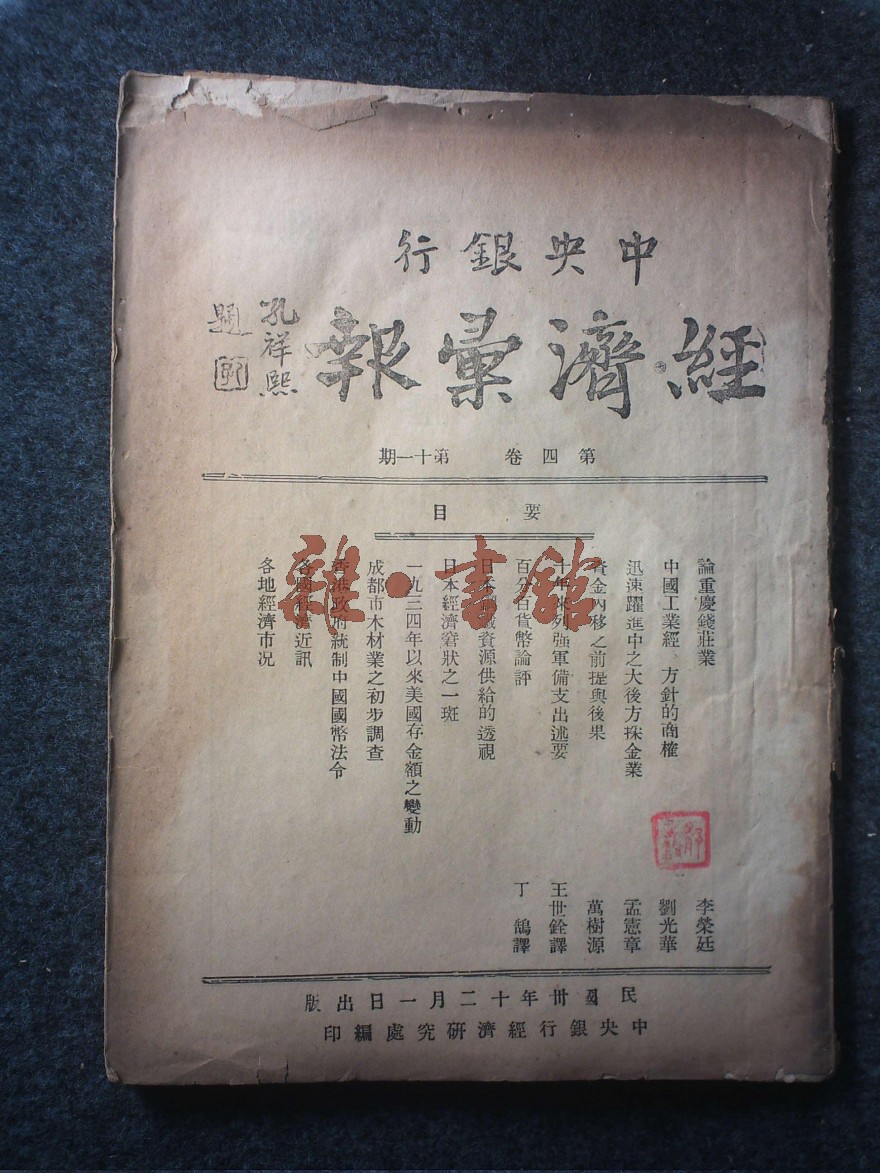 中央銀行
經濟彙報
孔祥熙
題
第四卷 第十一期
要目
論重慶錢莊業 李榮廷
中國工業經 方針的商榷 劉光華
迅速躍進中之大後方採金業 孟憲章
資金內移之前提與後果 萬樹源
十年來列強軍備支出述要 王世銓譯
百分百貨幣論評 丁鵠譯
日本鋼鐵資源供給的透視
日本經濟窘狀之一斑
一九三四年以來美國存金額之變動
成都市木材業之初步調查
香港政府統制中國國幣法令
各國經濟近訊
各地經濟市況
雜·書館
民國卅年十二月一日出版
中央銀行經濟研究處編印